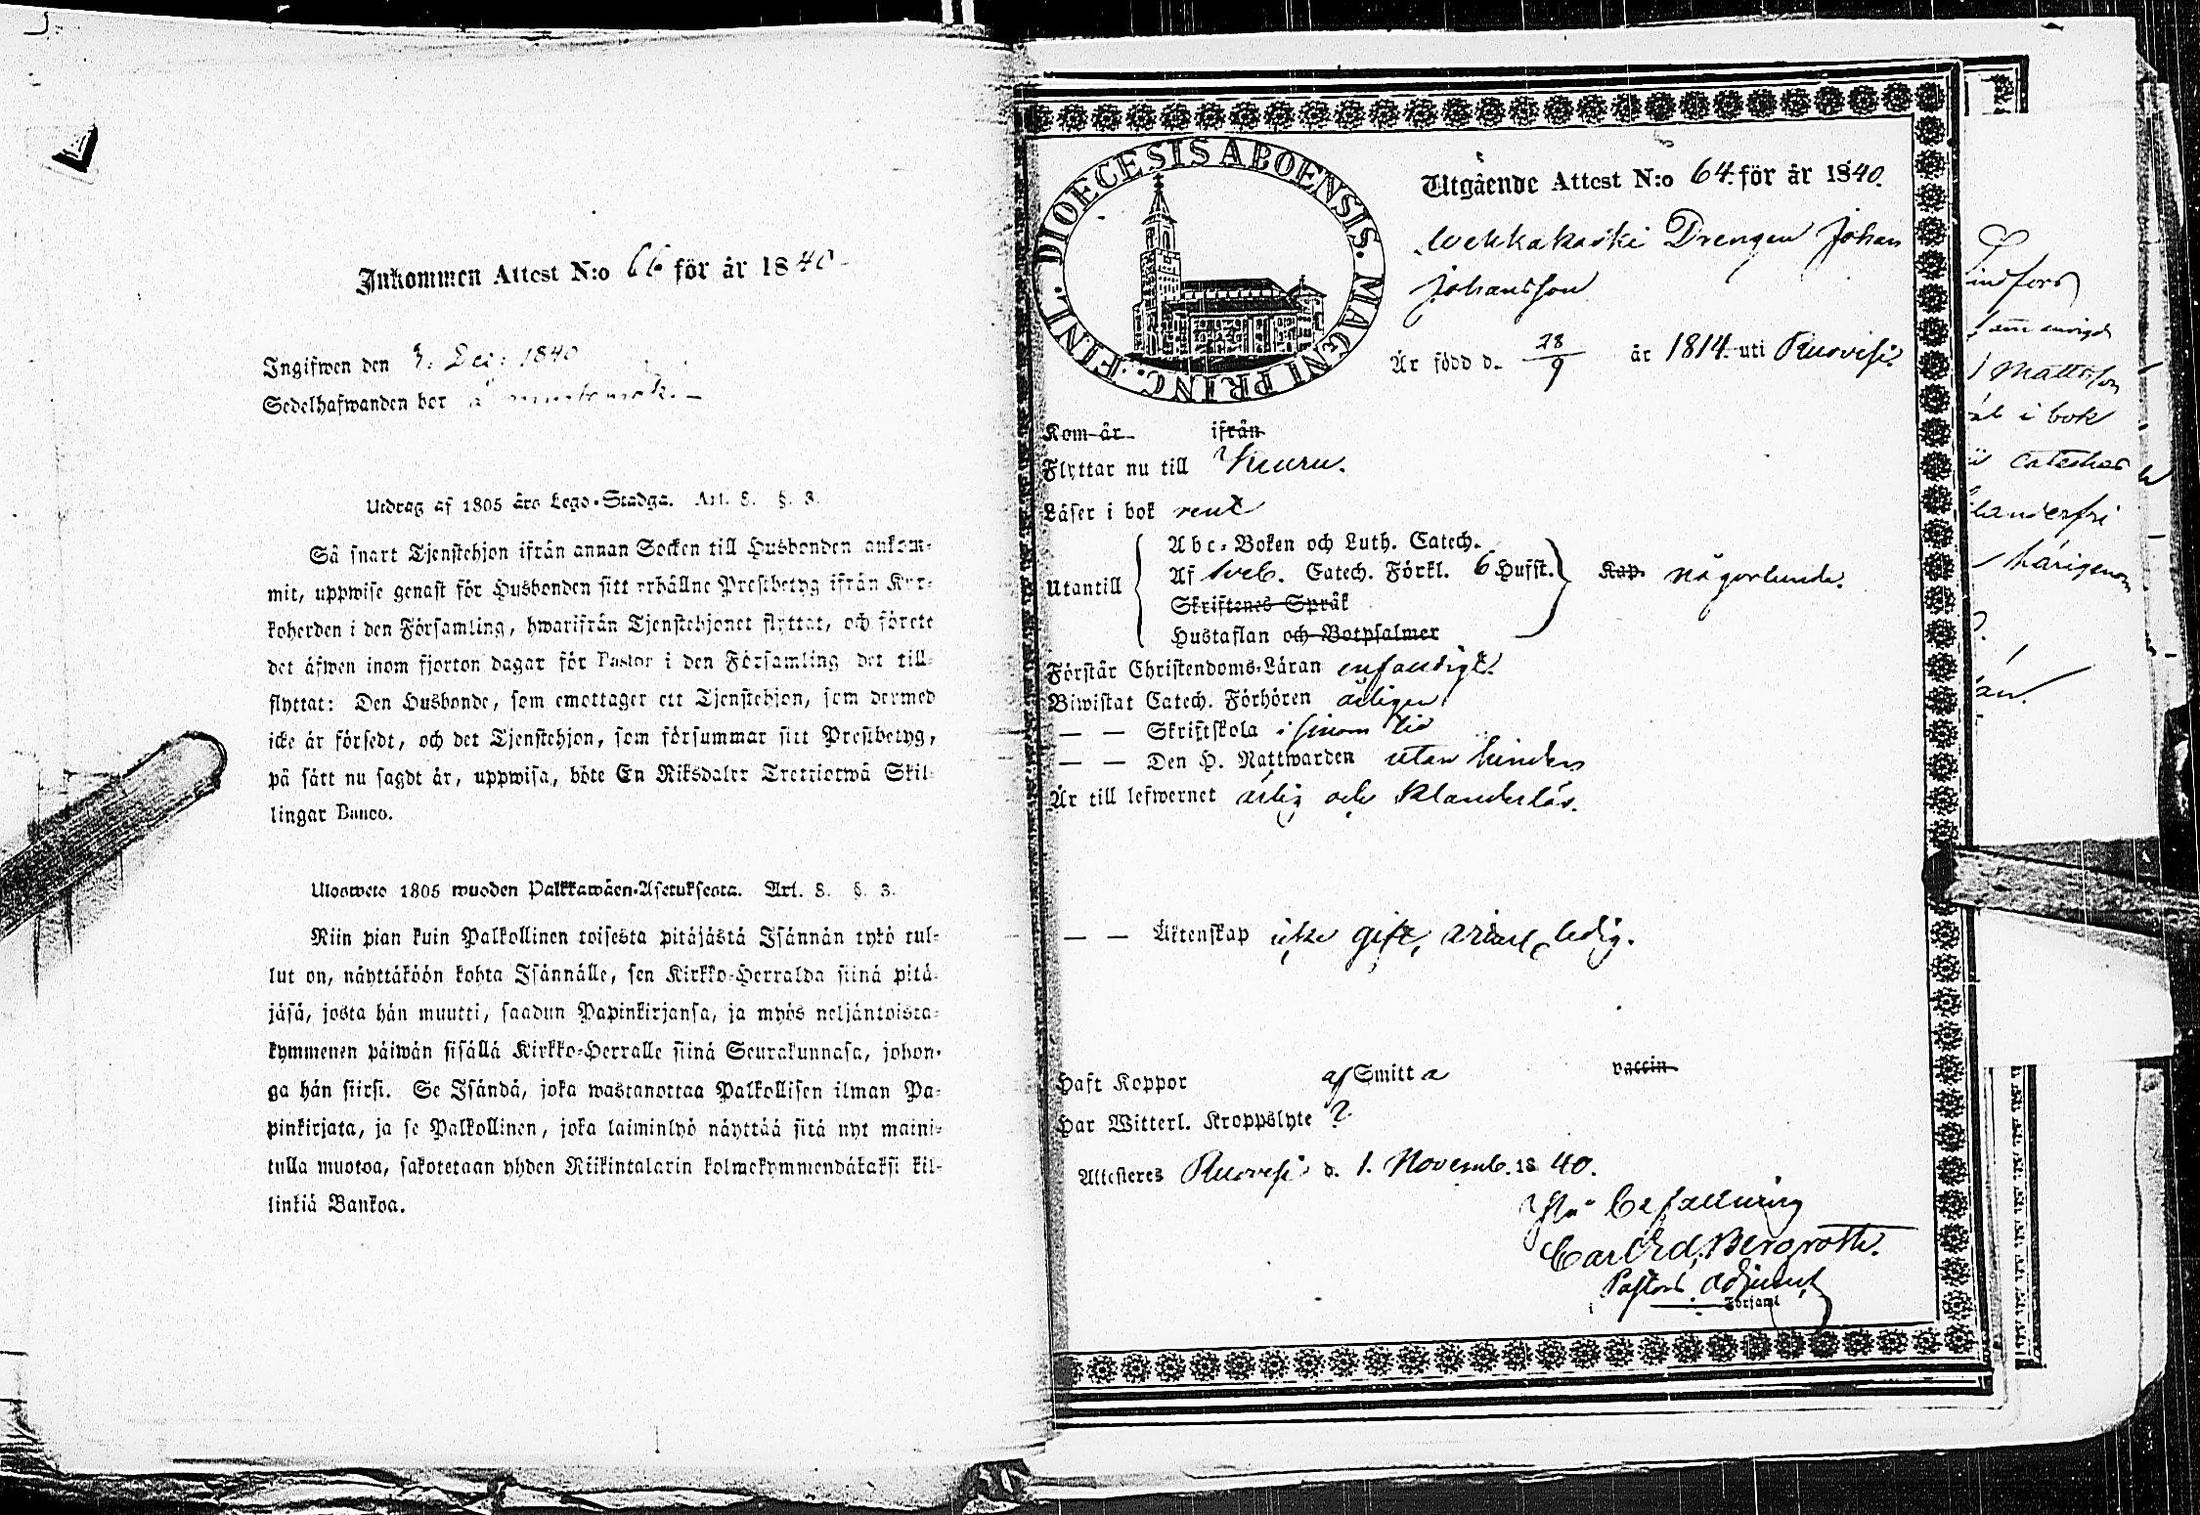 Inkommen Attest N:o 66 för år 1840
Ingifwen den 3. Dec: 1840
Sedelhafwanden bor
Utdrag af 1805 års Lego-Stadga. Art. 8. §. 3.
Så snart Tjenstehjon ifrån annan Socken till Husbonden ankom-
mit, uppwise genast för Husbonden sitt erhållne Prestbetyg ifrån Kyr-
koherden i den Församling, hwarifrån Tjenstehjonet flyttat, och förete
det äfwen inom fjorton dagar för Pastor i den Församling det till-
flyttat: Den Husbonde, som emottager ett Tjenstehjon, som dermed
icke är försedt, och det Tjenstehjon, som försummar sitt Prestbetyg,
på sätt nu sagdt är, uppwisa, böte En Riksdaler Trettiotwå Skil-
lingar Banco.
Ulosweto 1805 wuoden Palkkawäen-Asetuksesta. Art. 8. §. 3.
Niin pian kuin Palkollinen toisesta pitäjästä Isännän tykö tul-
lut on, näyttäköön kohta Isännälle, sen Kirkko-Herralda siinä pitä-
jäsä, josta hän muutti, saadun Papinkirjansa, ja myös neljäntoista-
kymmenen päiwän sisällä Kirkko-Herralle siinä Seurakunnasa, johon-
ga hän siirsi. Se Isändä, joka wastanottaa Palkollisen ilman Pa-
pinkirjata, ja se Palkollinen, joka laiminlyö näyttää sitä nyt maini-
tulla muotoa, sakotetaan yhden Riikintalarin kolmekymmendäkaksi kil-
linkiä Bankoa.
DIOECESIS ABOENSIS. MAGNI PRINC. FINL.
Utgående Attest N:o 64. för år 1840.
Drengen Johan
Johansson
Är född d. 28/9 år 1814 uti Ruovesi
Kom år ifrån
Flyttar nu till Keuru.
Läser i bok rent
Abc-Boken och Luth. Catech.
Utantill Af Sveb. Catech. Förkl. 6 Hufst. Kap. någorlunda.
Skriftenes Språk
Hustaflan och Botpsalmer
Förstår Christendoms-Läran enfaldigt.
Biwistat Catech. Förhören årligen
— — Skriftskola i sinom tid
— — Den H. Nattwarden utan hinder
Är till lefwernet ärlig och klanderlös.
— — Äktenskap icke gift, ledig.
Haft Koppor af Smitta vaccin
Har Witterl. Kroppslyte ?
Attesteras Ruovesi d. 1. Novemb. 1840.
På befallning
Carl Ed. Bergroth.
Pastors Adjunct
i Församl
indfors
Mattsson
i bok